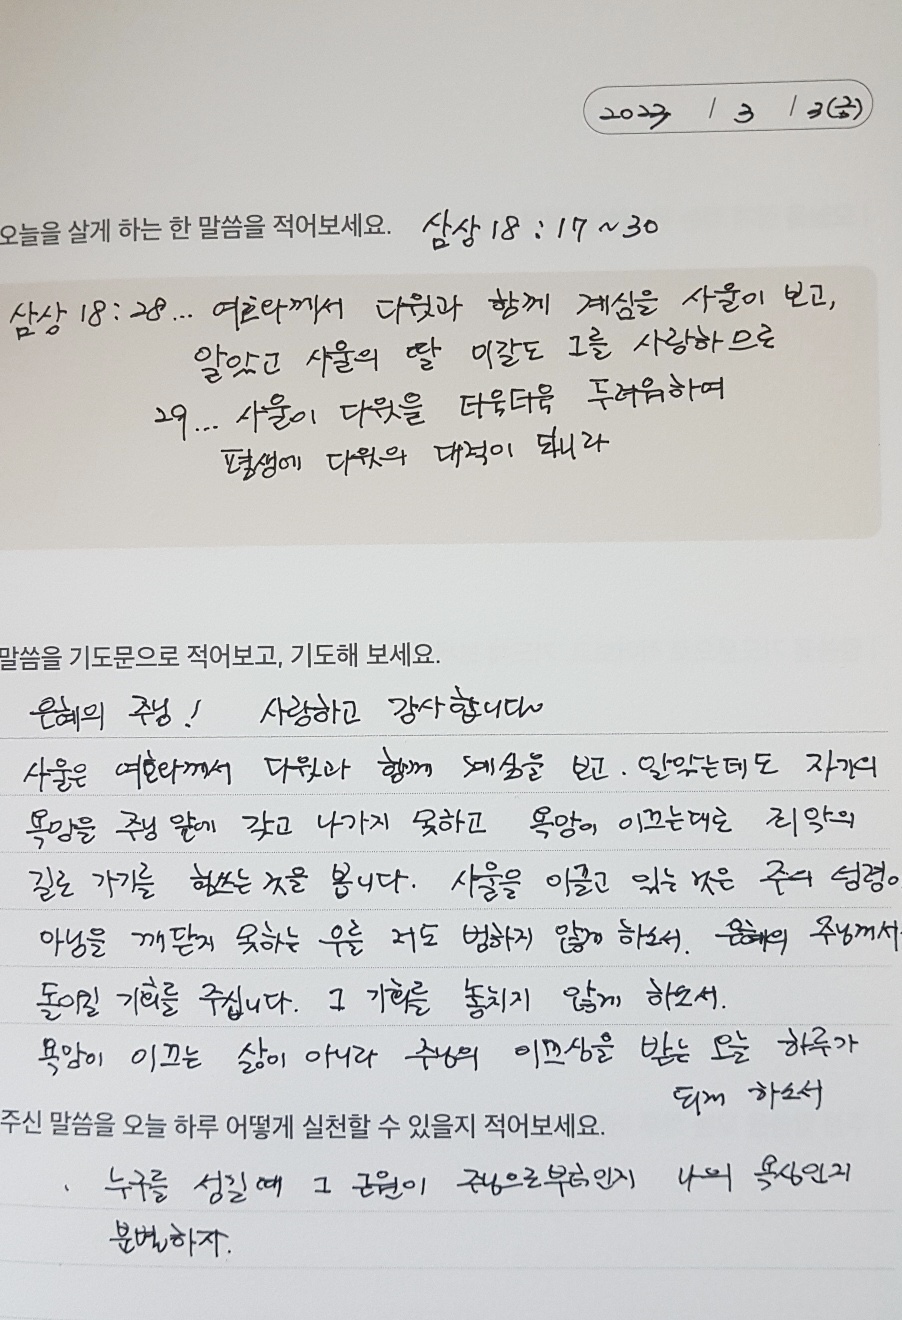 2023 / 3 / 3(금)
오늘을 살게 하는 한 말씀을 적어보세요. 삼상 18 : 17 ~ 30
삼상 18 : 28 ... 여호와께서 다윗과 함께 계심을 사울이 보고,
알았고 사울의 딸 미갈도 그를 사랑하므로
29 ... 사울이 다윗을 더욱더욱 두려워하여
평생에 다윗의 대적이 되니라
말씀을 기도문으로 적어보고, 기도해 보세요.
은혜의 주님! 사랑하고 감사합니다~
사울은 여호와께서 다윗과 함께 계심을 보고. 알았는데도 자기의
욕망을 주님 앞에 갖고 나가지 못하고 욕망이 이끄는대로 죄악의
길로 가기를 힘쓰는 것을 봅니다. 사울을 이끌고 있는 것은 주의 성령이
아님을 깨닫지 못하는 우를 저도 범하지 않게 하소서. 은혜의 주님께서
돌이킬 기회를 주십니다. 그 기회를 놓치지 않게 하소서.
욕망이 이끄는 삶이 아니라 주님의 이끄심을 받는 오늘 하루가
되게 하소서
주신 말씀을 오늘 하루 어떻게 실천할 수 있을지 적어보세요.
· 누구를 섬길 때 그 근원이 주님으로부터인지 나의 욕심인지
분별하자.